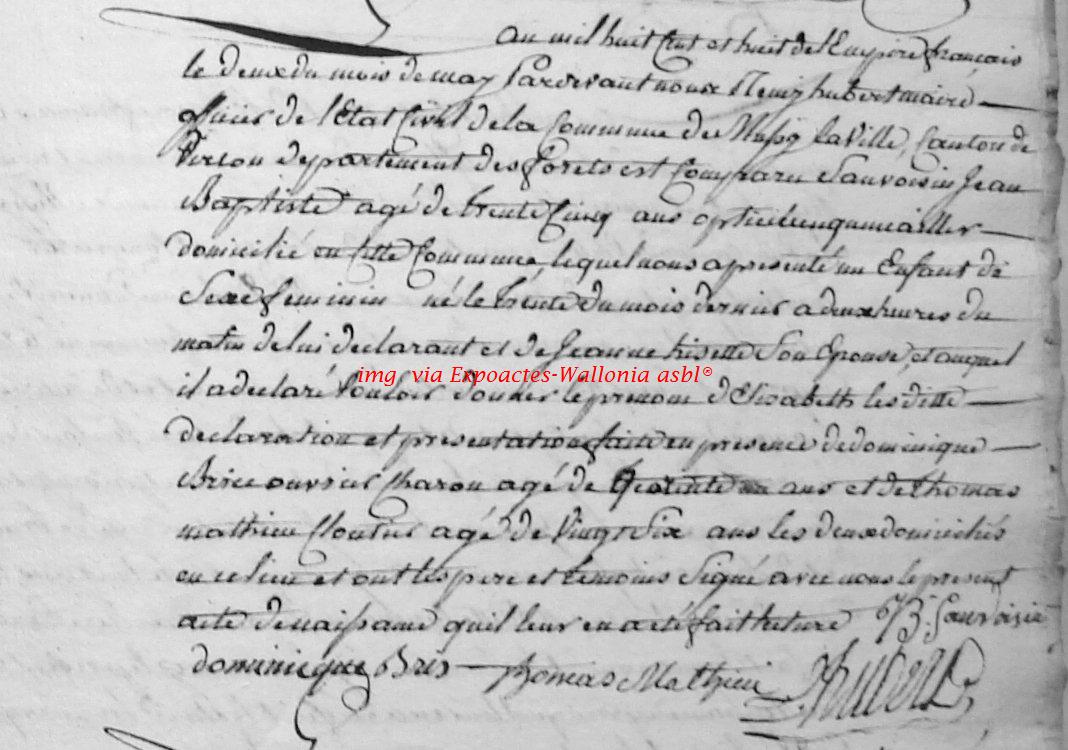 an mil huit Cent et huit de l'Empire français
le deux du mois de may Pardevant nous Remy hubert maire
officier de l'Etat Civil de la Commune de Mussy la Ville, Canton de
Virton Departement des forets est Comparu Sauvoisin Jean
Baptiste agé de trente Cinq ans quincailler
domicilié en Cette Commune, lequel nous a presenté un Enfant de
Sexe feminin né le trente du mois dernier a deux heures du
matin de lui declarant et de Jeanne Son Epouse, et auquel
img. via Expoactes-Wallonia asbl®
il a declaré Vouloir donner le prenom d'Elisabeth les ditte
declaration et presentation faite en presence de dominique
Brice ouvrier Charon agé de quarante un ans et de thomas
mathieu Cloutier agé de Vingt Six ans les deux domiciliés
en ce lieu et ont les pere et temoins Signé avec nous le present
acte de naissance qu'il leur en a eté fait lecture JB. Sauvoisin
dominicque Bris thomas Mathieu Hubert